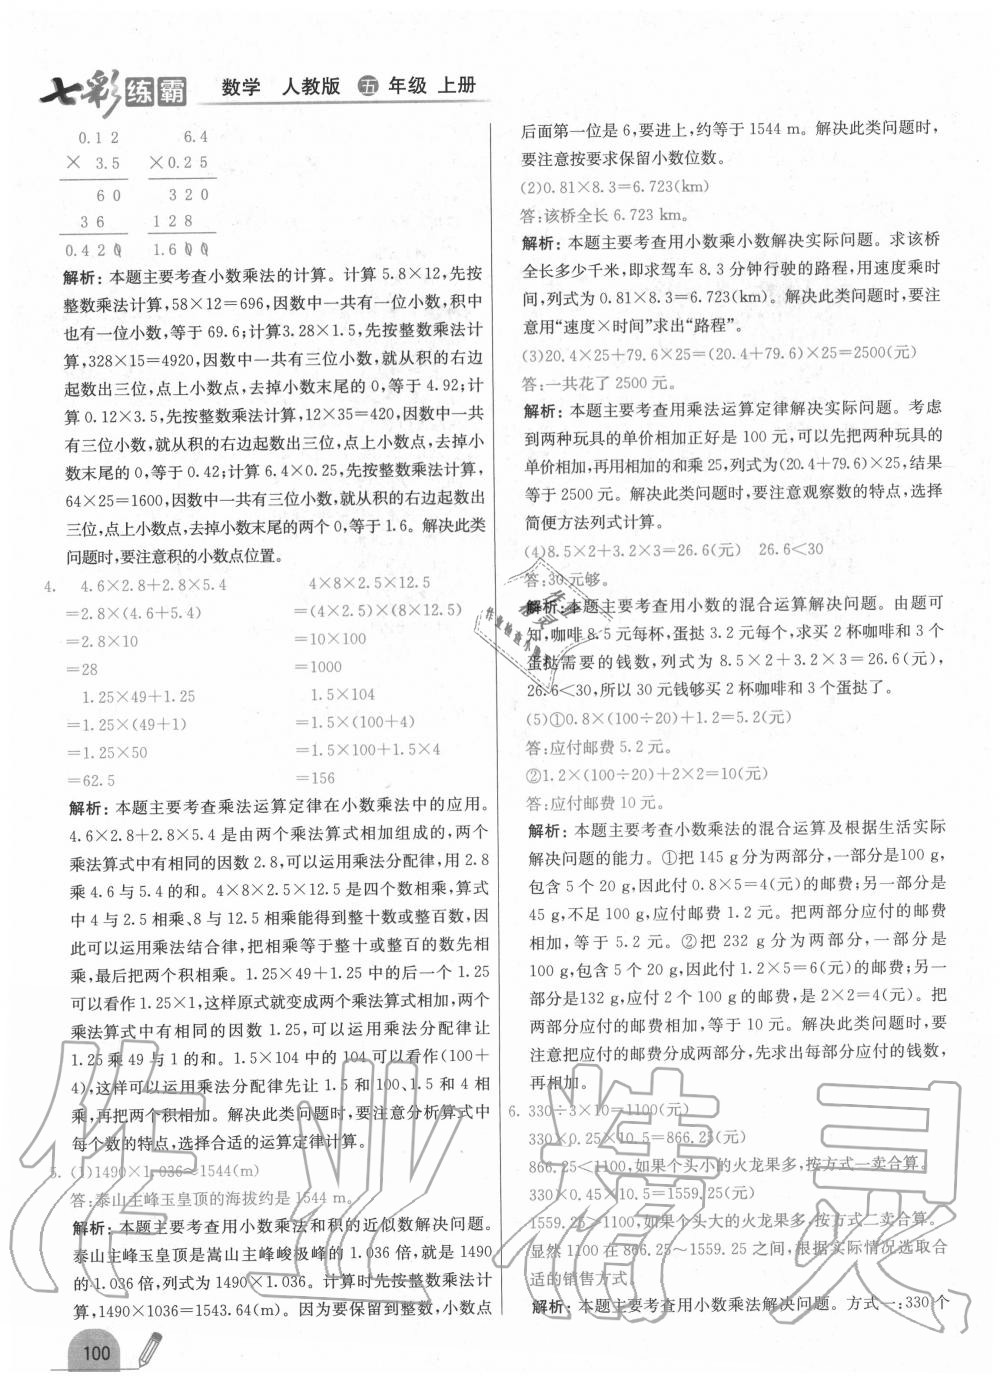 七彩练霸 数学 人教版 五 年级 上册
0.12 6.4
× 3.5 ×0.25
60 320
36 128
0.420 1.600
解析:本题主要考查小数乘法的计算。计算 5.8×12,先按
整数乘法计算,58×12=696,因数中一共有一位小数,积中
也有一位小数,等于 69.6;计算3.28×1.5,先按整数乘法计
算,328×15=4920,因数中一共有三位小数,就从积的右边
起数出三位,点上小数点,去掉小数末尾的 0,等于 4.92;计
算 0.12×3.5,先按整数乘法计算,12×35=420,因数中一共
有三位小数,就从积的右边起数出三位,点上小数点,去掉小
数末尾的 0,等于 0.42;计算 6.4×0.25,先按整数乘法计算,
64×25=1600,因数中一共有三位小数,就从积的右边起数出
三位,点上小数点,去掉小数末尾的两个 0,等于 1.6。解决此类
问题时,要注意积的小数点位置。
4. 4.6×2.8+2.8×5.4 4×8×2.5×12.5
=2.8×(4.6+5.4) =(4×2.5)×(8×12.5)
=2.8×10 =10×100
=28 =1000
1.25×49+1.25 1.5×104
=1.25×(49+1) =1.5×(100+4)
=1.25×50 =1.5×100+1.5×4
=62.5 =156
解析:本题主要考查乘法运算定律在小数乘法中的应用。
4.6×2.8+2.8×5.4 是由两个乘法算式相加组成的,两个
乘法算式中有相同的因数 2.8,可以运用乘法分配律,用 2.8
乘 4.6 与 5.4 的和。4×8×2.5×12.5 是四个数相乘,算式
中 4 与 2.5 相乘、8 与 12.5 相乘能得到整十数或整百数,因
此可以运用乘法结合律,把相乘等于整十或整百的数先相
乘,最后把两个积相乘。1.25×49+1.25 中的后一个 1.25
可以看作 1.25×1,这样原式就变成两个乘法算式相加,两个
乘法算式中有相同的因数 1.25,可以运用乘法分配律让
1.25 乘 49 与 1 的和。1.5×104 中的 104 可以看作(100+
4),这样可以运用乘法分配律先让 1.5 和 100、1.5 和 4 相
乘,再把两个积相加。解决此类问题时,要注意分析算式中
每个数的特点,选择合适的运算定律计算。
5. (1)1490×1.036≈1544(m)
答:泰山主峰玉皇顶的海拔约是 1544 m。
解析:本题主要考查用小数乘法和积的近似数解决问题。
泰山主峰玉皇顶是嵩山主峰峻极峰的 1.036 倍,就是 1490
的 1.036 倍,列式为 1490×1.036。计算时先按整数乘法计
算,1490×1036=1543.64(m)。因为要保留到整数,小数点
后面第一位是 6,要进上,约等于 1544 m。解决此类问题时,
要注意按要求保留小数位数。
(2)0.81×8.3=6.723(km)
答:该桥全长 6.723 km。
解析:本题主要考查用小数乘小数解决实际问题。求该桥
全长多少千米,即求驾车 8.3 分钟行驶的路程,用速度乘时
间,列式为 0.81×8.3=6.723(km)。解决此类问题时,要注
意用“速度×时间”求出“路程”。
(3)20.4×25+79.6×25=(20.4+79.6)×25=2500(元)
答:一共花了 2500 元。
解析:本题主要考查用乘法运算定律解决实际问题。考虑
到两种玩具的单价相加正好是 100 元,可以先把两种玩具的
单价相加,再用相加的和乘 25,列式为(20.4+79.6)×25,结果
等于 2500 元。解决此类问题时,要注意观察数的特点,选择
简便方法列式计算。
(4)8.5×2+3.2×3=26.6(元) 26.6<30
答:30 元够。
解析:本题主要考查用小数的混合运算解决问题。由题可
知,咖啡 8.5 元每杯,蛋挞 3.2 元每个,求买 2 杯咖啡和 3 个
蛋挞需要的钱数,列式为 8.5×2+3.2×3=26.6(元),
26.6<30,所以 30 元钱够买 2 杯咖啡和 3 个蛋挞了。
(5)①0.8×(100÷20)+1.2=5.2(元)
答:应付邮费 5.2 元。
②1.2×(100÷20)+2×2=10(元)
答:应付邮费 10 元。
解析:本题主要考查小数乘法的混合运算及根据生活实际
解决问题的能力。①把 145 g 分为两部分,一部分是100 g,
包含 5 个 20 g,因此付 0.8×5=4(元)的邮费;另一部分是
45 g,不足 100 g,应付邮费 1.2 元。把两部分应付的邮费
相加,等于 5.2 元。②把 232 g 分为两部分,一部分是
100 g,包含 5 个 20 g,因此付 1.2×5=6(元)的邮费;另一
部分是132 g,应付 2 个 100 g 的邮费,是 2×2=4(元)。把
两部分应付的邮费相加,等于 10 元。解决此类问题时,要
注意把应付的邮费分成两部分,先求出每部分应付的钱数,
再相加。
6. 330÷3×10=1100(元)
330×0.25×10.5=866.25(元)
866.25<1100,如果个头小的火龙果多,按方式一卖合算。
330×0.45×10.5=1559.25(元)
1559.25>1100,如果个头大的火龙果多,按方式二卖合算。
显然 1100 在 866.25~1559.25 之间,根据实际情况选取合
适的销售方式。
解析:本题主要考查用小数乘法解决问题。方式一:330 个
100
作业精灵